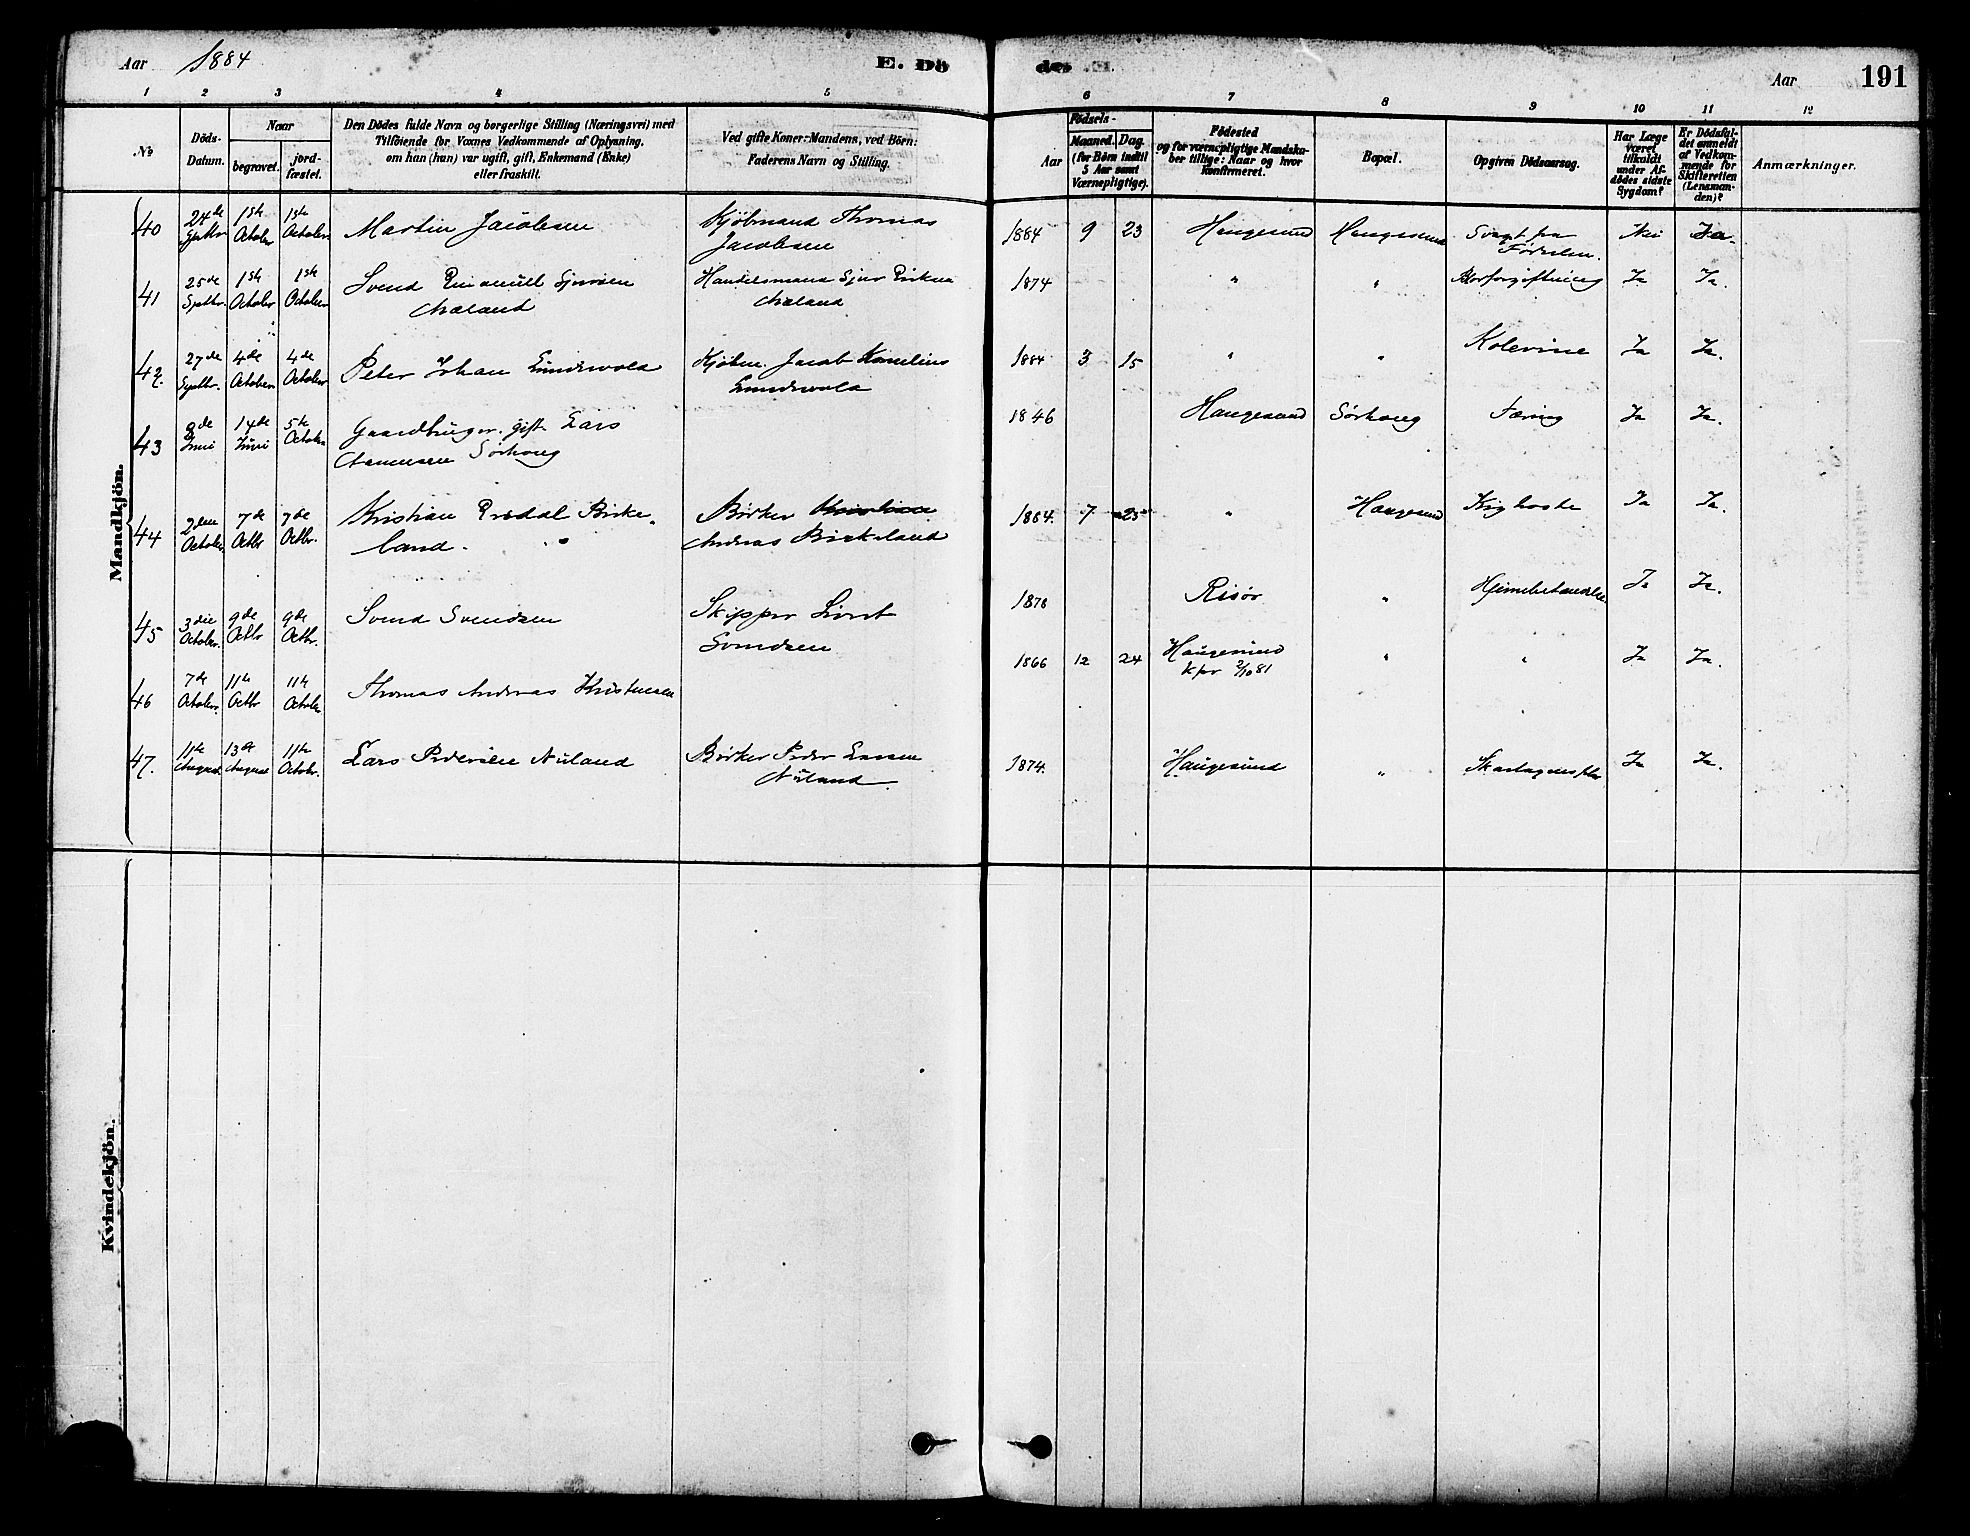 Aar 1884 E. Dö
de. E.
Aar 191
1 2 3 4 5 6 7 8 9 10 11 12
No
Döds-
Datum.
Naar
begravet.
jord-
fæstet.
Den Dödes fulde Navn og borgerlige Stilling (Næringsvei) med
Tilföiende for Voxnes Vedkommende af Oplysning,
om han (hun) var ugift, gift, Enkemand (Enke)
eller fraskilt.
Ved gifte Koner: Mandens, ved Börn:
Faderens Navn og Stilling.
Födsels-
Aar
Maaned. Dag.
(for Börn indtil
5 Aar samt
Værnepligtige).
Födested
og for værnepligtige Mandska-
ber tillige: Naar og hvor
konfirmeret.
Bopæl.
Opgiven Dödsaarsag.
Har Læge
været
tilkaldt
under Af-
dödes sidste
Sygdom?
Er Dödsfal-
det anmeldt
af Vedkom-
mende for
Skifteretten
(Lensman-
den)?
Anmærkninger.
Mandkjön.
40 24de Septbr. 1ste October 1ste October Martin Jacobsen Kjöbmand Thomas
Jacobsen 1884 9 23 Haugesund Haugesund Svagt fra
Fødselen. Nei Ja.
41 25de Septbr. 1ste October 1ste October Svend Emanuel Sjursen
Aaland Handelsmand Sjur Eriksen
Aaland 1874 " " Blodforgiftning Ja Ja.
42. 27de Septbr. 4de October 4de October Peter Johan Lundevold Kjöbm. Jacob Kornelius
Lundevold 1884 3 15 " " Kolerine Ja Ja.
43 9de Juni 14de Juni 5te October Gaardbruger. gift. Lars
Sörhoug 1846 Haugesund Sörhoug Tæring Ja Ja.
44 2den October 7de Octbr 7de Octbr. Kristian Birke-
land. Bödker
Andreas Birkeland 1884. 7 25 " Haugesund Kighoste Ja Ja.
45 3die October. 9de Octbr 9de Octbr. Svend Svendsen Skipper
Svendsen 1878 Risör " Ja Ja.
46 7de October. 11te Octbr 11te October. Thomas Andreas Kristensen 1866 12 24 Haugesund
2/10 81 " " Ja Ja.
47. 11te August 13de August 11te Octobr. Lars Pedersen Aaland Bödker Peder Larsen
Aaland. 1874. Haugesund " Ja Ja.
Kvindekjön.